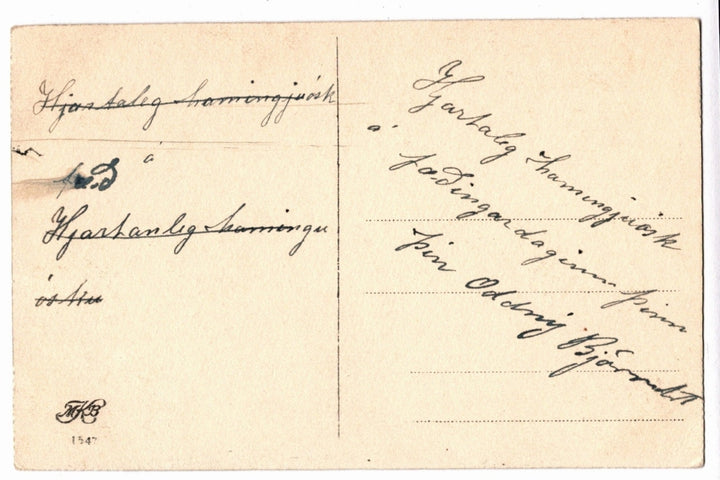 Hjartaleg hamingjuósk
á
fæð
Hjartanleg hamingu
ósku
MKB
1547
Hjartaleg hamingjuósk
á fæðingardaginn þinn
þin Oddný Björnsdt